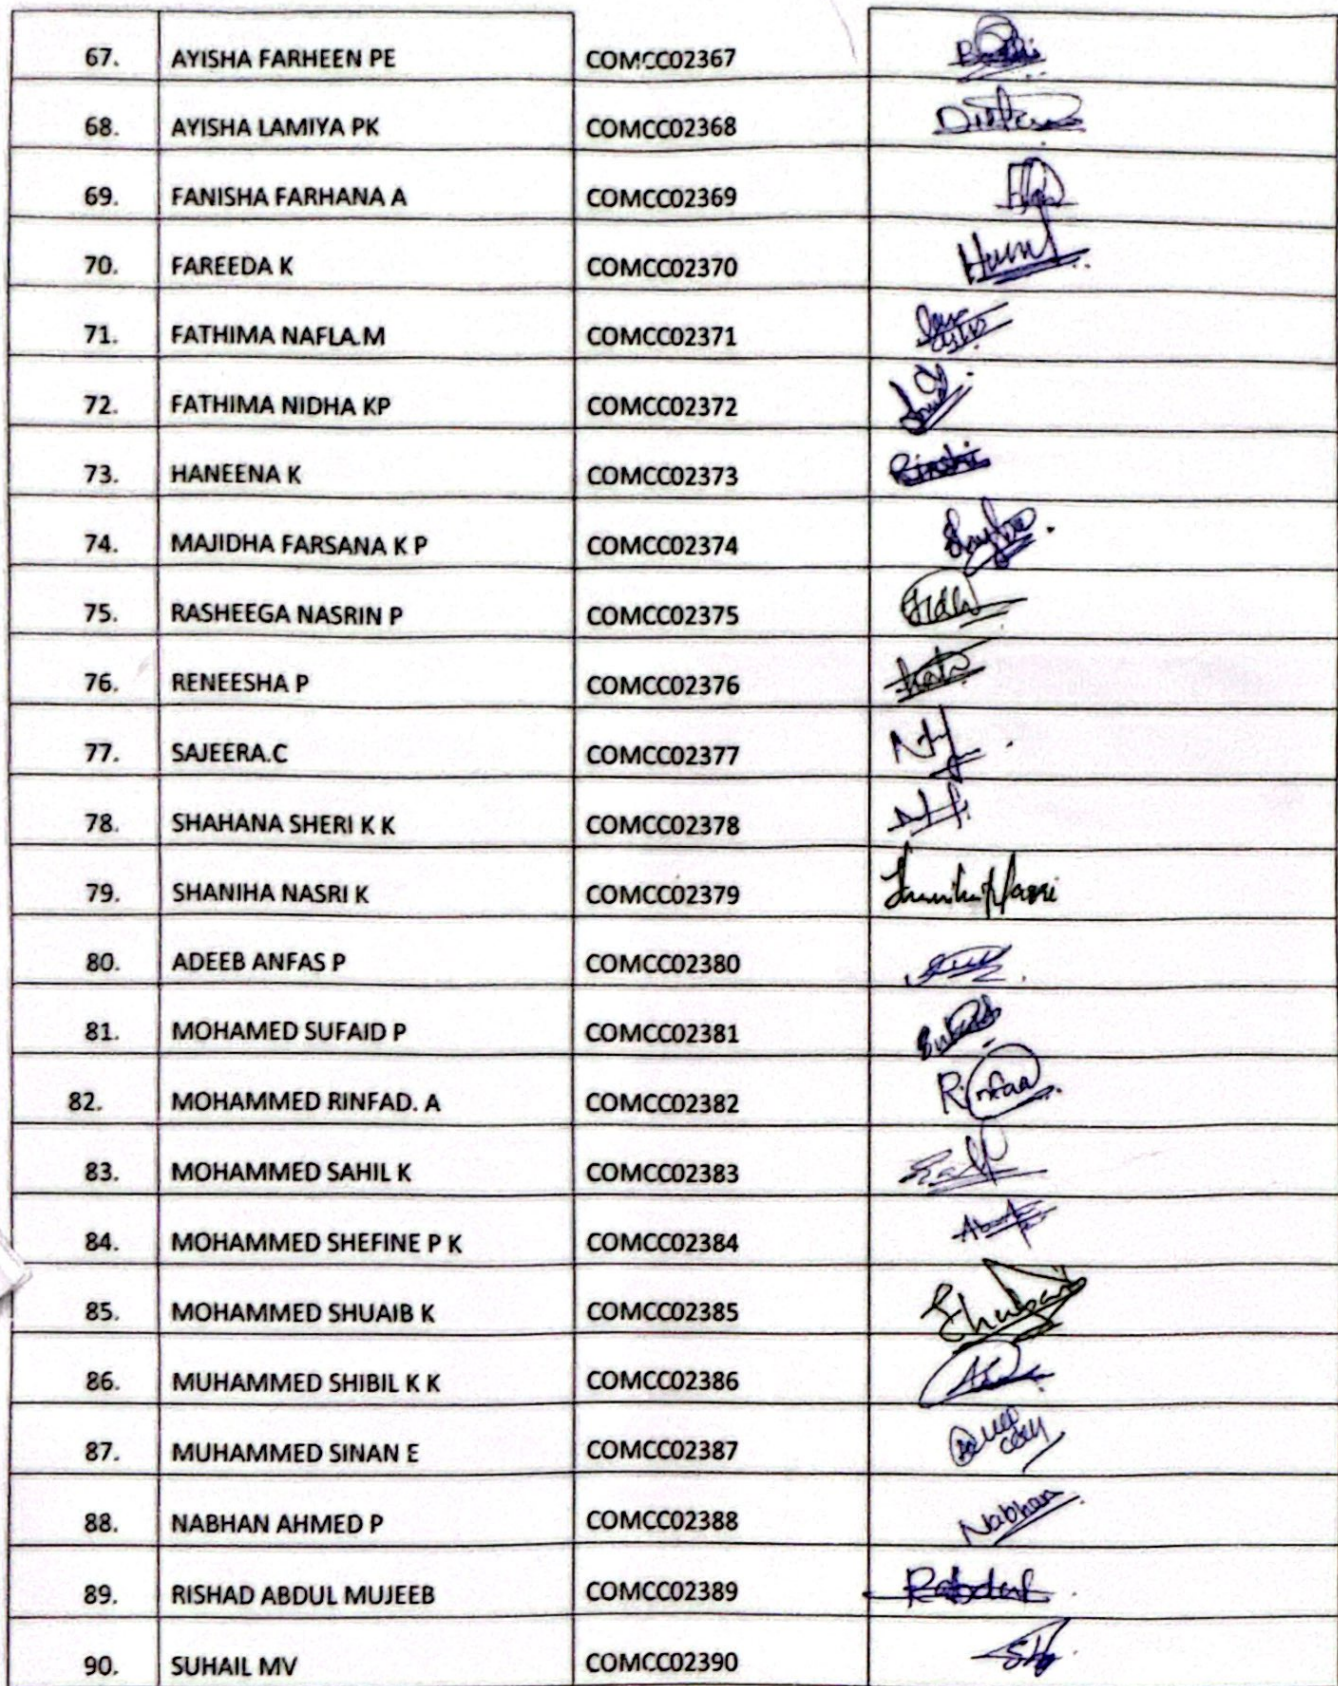 67. AYISHA FARHEEN PE COMCC02367
68. AYISHA LAMIYA PK COMCC02368
69. FANISHA FARHANA A COMCC02369
70. FAREEDA K COMCC02370
71. FATHIMA NAFLA.M COMCC02371
72. FATHIMA NIDHA KP COMCC02372
73. HANEENA K COMCC02373 Rinshi
74. MAJIDHA FARSANA K P COMCC02374
75. RASHEEGA NASRIN P COMCC02375
76. RENEESHA P COMCC02376
77. SAJEERA.C COMCC02377
78. SHAHANA SHERI K K COMCC02378
79. SHANIHA NASRI K COMCC02379 Shaniha Nasri
80. ADEEB ANFAS P COMCC02380
81. MOHAMED SUFAID P COMCC02381
82. MOHAMMED RINFAD. A COMCC02382 Rinfad
83. MOHAMMED SAHIL K COMCC02383
84. MOHAMMED SHEFINE P K COMCC02384
85. MOHAMMED SHUAIB K COMCC02385
86. MUHAMMED SHIBIL K K COMCC02386
87. MUHAMMED SINAN E COMCC02387
88. NABHAN AHMED P COMCC02388 Nabhan
89. RISHAD ABDUL MUJEEB COMCC02389
90. SUHAIL MV COMCC02390